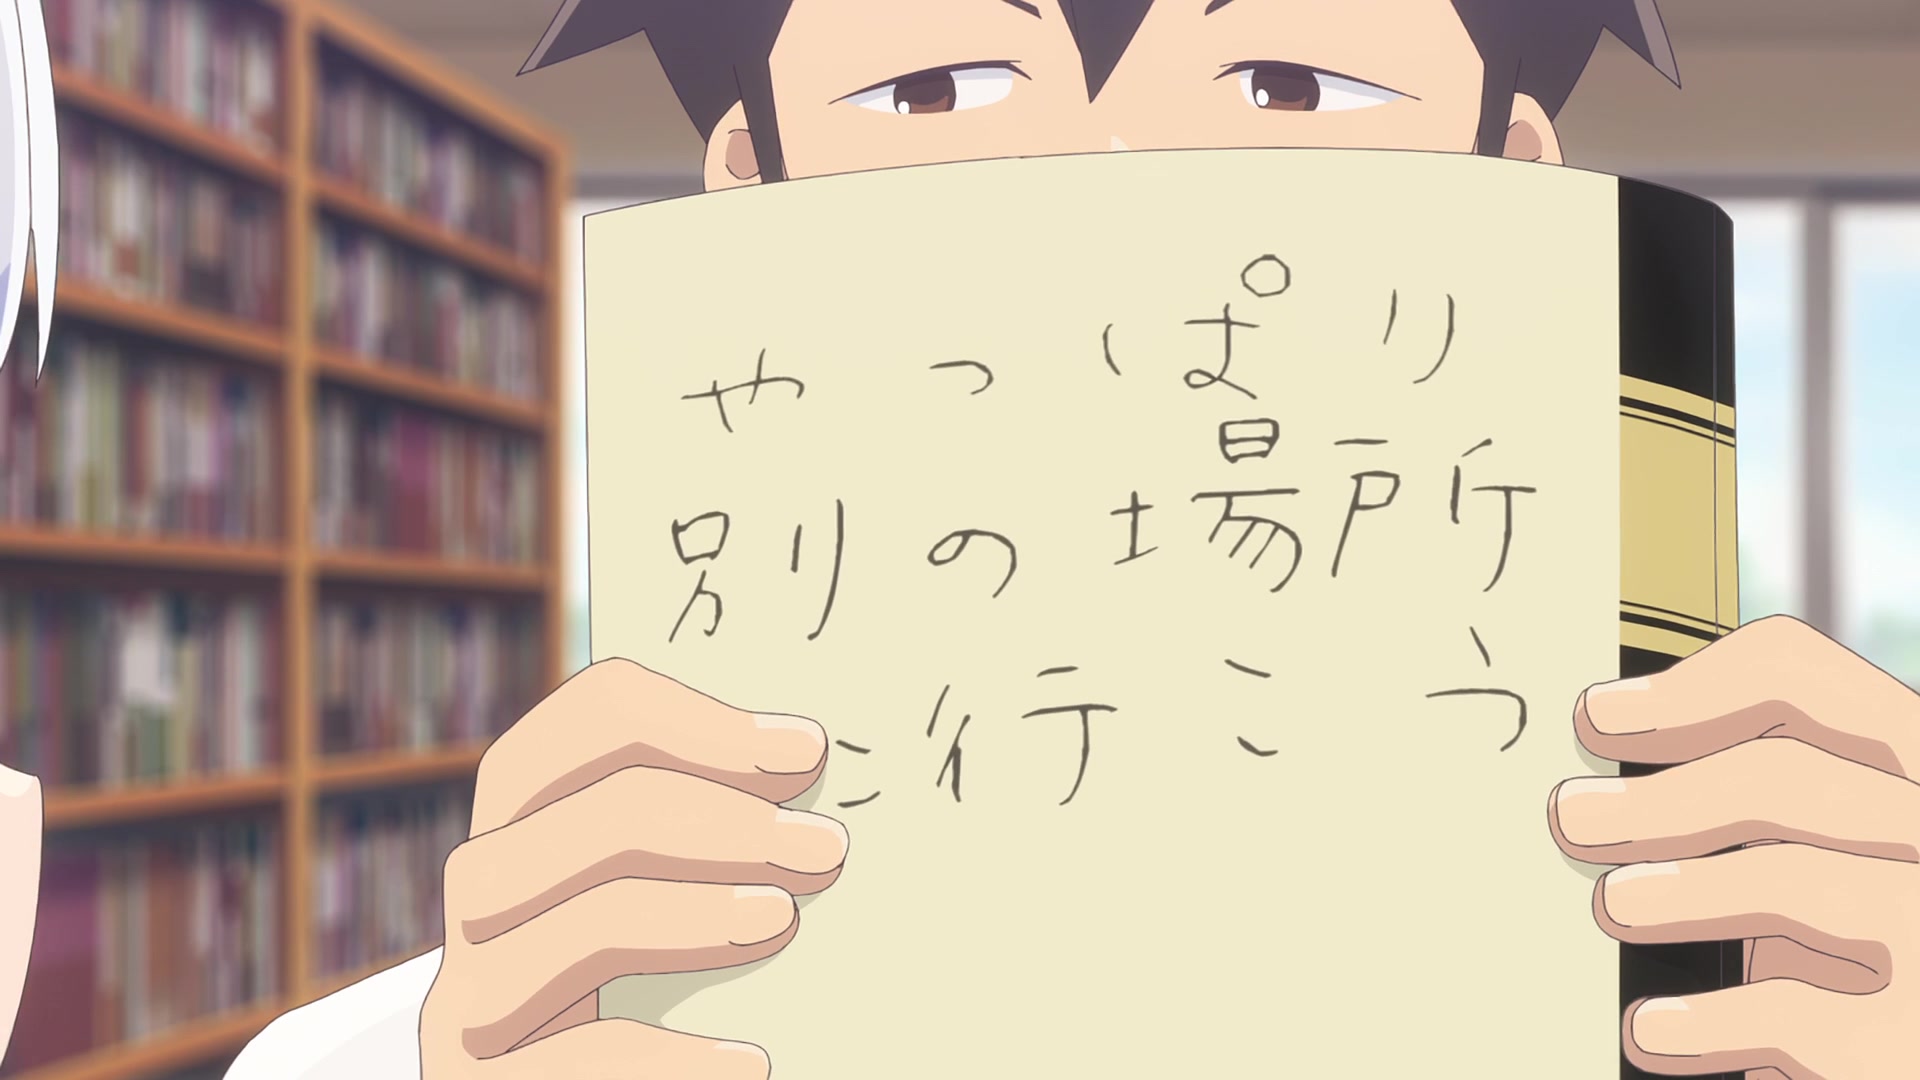 やっぱり
別の場所
に行こう